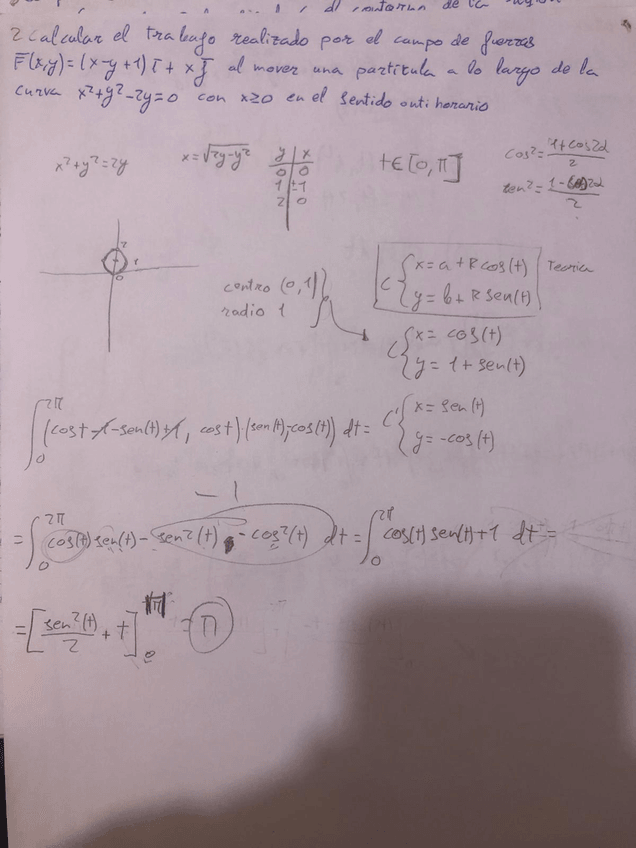 2 Calcular el trabajo realizado por el campo de fuerzas
F(x,y)=(x-y+1)i + xj al mover una particula a lo largo de la
curva x²+y²-2y=0 con x≥0 en el sentido antihorario
x²+y²=2y
x=√2y-y²
y | x
0 | 0
1 | ±1
2 | 0
t∈[0,π]
cos²=1+cos2α/2
sen²=1-cos2α/2
2
1
0
centro (0,1)
radio 1
C { x=a+Rcos(t)
y=b+Rsen(t)
Teorica
C { x= cos(t)
y= 1+sen(t)
C' { x= sen(t)
y= -cos(t)
∫₀^2π (cost-1-sen(t)+1, cost)·(sen(t),-cos(t)) dt=
-1
=∫₀^2π cos(t)sen(t)-sen²(t)-cos²(t) dt=∫₀^2π cos(t)sen(t)+1 dt=
=[sen²(t)/2 + t]₀^π = π